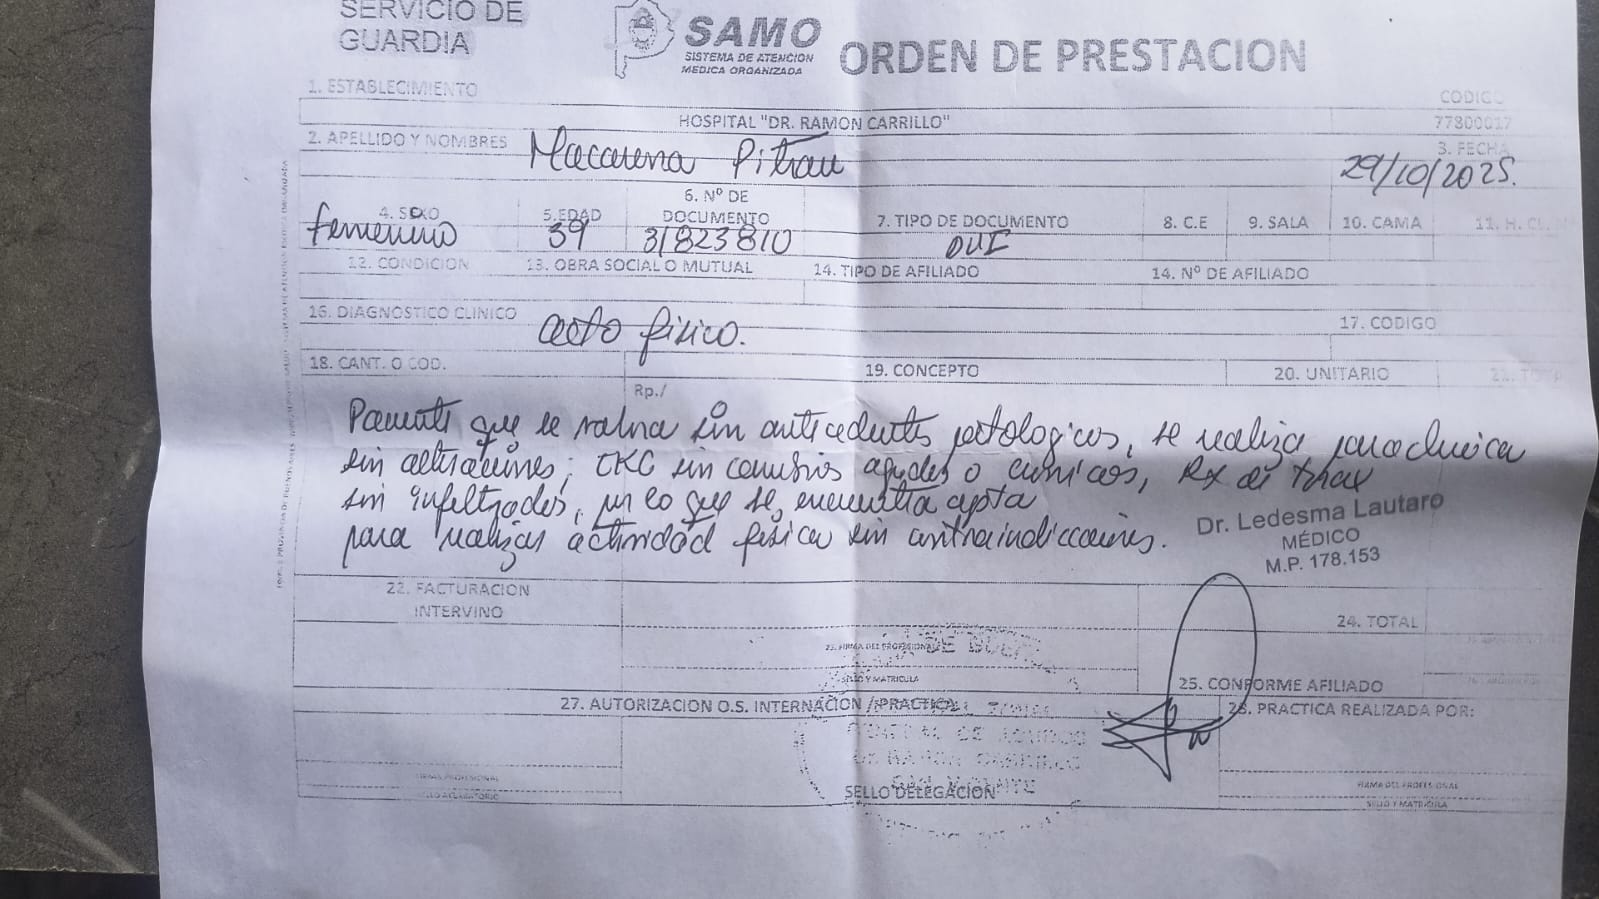 SERVICIO DE
GUARDIA
SAMO
SISTEMA DE ATENCION
MEDICA ORGANIZADA
ORDEN DE PRESTACION
1. ESTABLECIMIENTO
CODIGO
HOSPITAL "DR. RAMON CARRILLO"
77300017
2. APELLIDO Y NOMBRES Macarena Pitrau
3. FECHA
29/10/2025.
4. SEXO 5.EDAD 6. Nº DE DOCUMENTO 7. TIPO DE DOCUMENTO 8. C.E 9. SALA 10. CAMA 11. H. CL
femenino 39 31823810 DNI
12. CONDICION 13. OBRA SOCIAL O MUTUAL 14. TIPO DE AFILIADO 14. Nº DE AFILIADO
16. DIAGNOSTICO CLINICO apto físico. 17. CODIGO
18. CANT. O COD. 19. CONCEPTO 20. UNITARIO
Rp./
Paciente que se valora sin antecedentes patologicos, se realiza paraclinica
sin alteraciones; EKG sin cambios agudos o cronicos, Rx de torax
sin infiltrados, por lo que se encuentra apta
para realizar actividad fisica sin contraindicaciones.
Dr. Ledesma Lautaro
MÉDICO
M.P. 178.153
22. FACTURACION
INTERVINO
24. TOTAL
23. FIRMA DEL PROFESIONAL
SELLO Y MATRICULA
25. CONFORME AFILIADO
27. AUTORIZACION O.S. INTERNACION / PRACTICA
28. PRACTICA REALIZADA POR:
SELLO DELEGACION
FIRMA DEL PROFESIONAL
SELLO Y MATRICULA